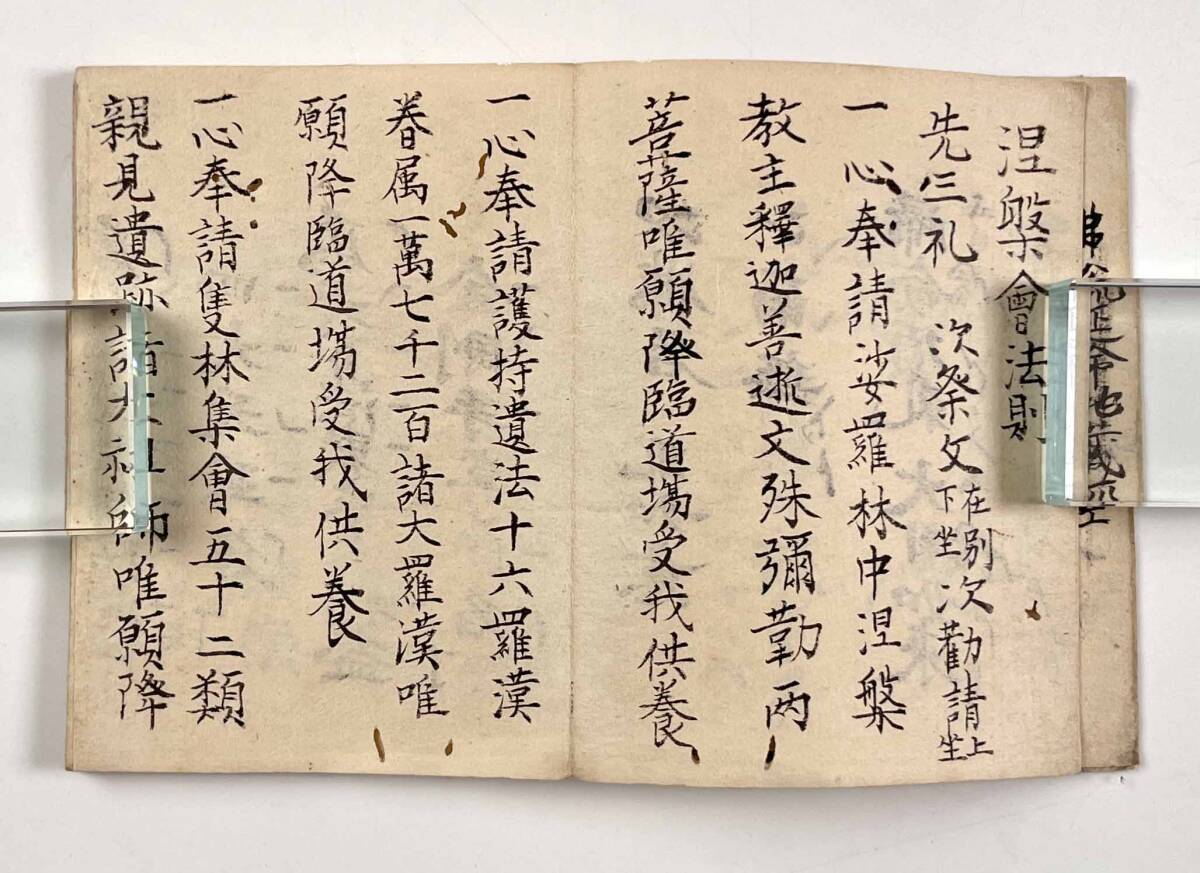 涅槃會法則
先三礼 次祭文在別下坐 次勸請上坐
一心奉請娑羅林中涅槃
教主釋迦善逝文殊彌勒両
菩薩唯願降臨道場受我供養
一心奉請護持遺法十六羅漢
眷属一萬七千二百諸大羅漢唯
願降臨道場受我供養
一心奉請隻林集會五十二類
親見遺跡諸大祖師唯願降